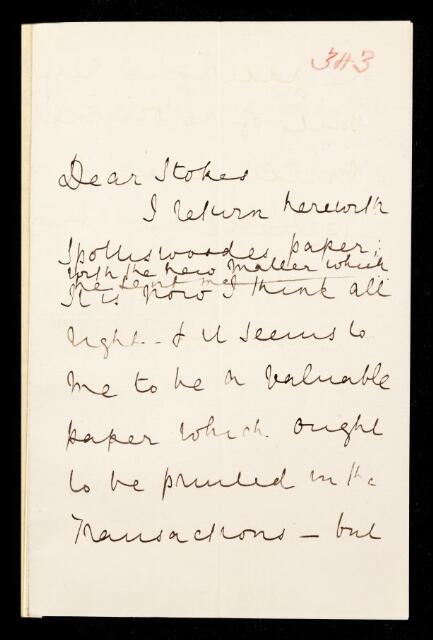 343
Dear Stokes
I return herewith
Spottiswoodes paper;
with the new matter which
he sent me
It is now I think all
right - & it seems to
me to be a valuable
paper which ought
to be printed in the
Transactions - but